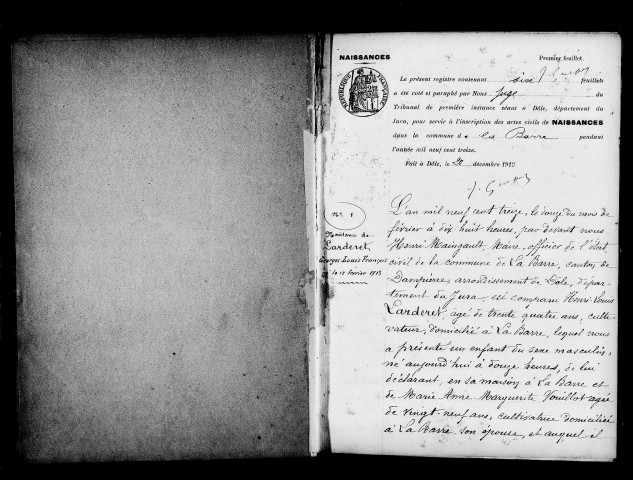 NAISSANCES
Premier feuillet.
RÉPUBLIQUE FRANÇAISE
Le présent registre contenant six feuillets
a été coté et paraphé par Nous Juge du
Tribunal de première instance séant à Dôle, département du
Jura, pour servir à l'inscription des actes civils de NAISSANCES
dans la commune de La Barre pendant
l'année mil neuf cent treize.
Fait à Dôle, le 20 décembre 1912.
No 1
Naissance de
Larderet
Georges Louis François
le 12 février 1913
L'an mil neuf cent treize, le douze du mois de
février à dix huit heures, par devant nous
Henri Maingault, Maire, officier de l'état
civil de la commune de La Barre, canton de
Dampierre, arrondissement de Dole, dépar-
tement du Jura, est comparu Henri Louis
Larderet, âgé de trente quatre ans, culti-
vateur, domicilié à La Barre, lequel nous
a présenté un enfant du sexe masculin,
né aujourd'hui à douze heures, de lui
déclarant, en sa maison à La Barre et
de Marie Anne Marguerite Vouillot agée
de vingt-neuf ans, cultivatrice domiciliée
à La Barre, son épouse, et auquel il